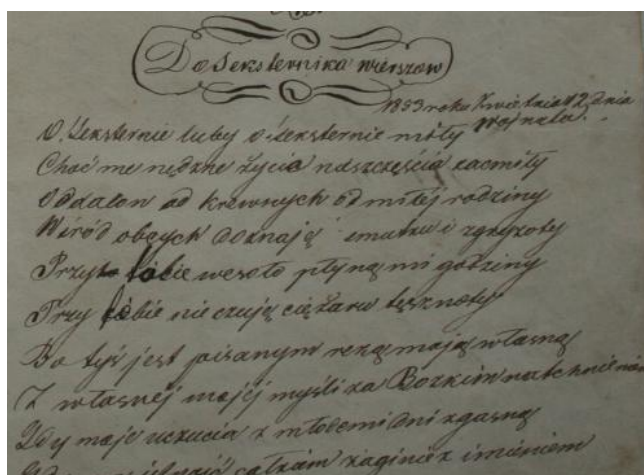 Do Seksternika wierszow
1853 roku Kwietnia 12 dnia
O Seksternie luby o Seksternie miły
Choć me nędzne życia naszczęścia zacmiły
Oddalon od krewnych od miłéj rodziny
Wśród obcych doznają smutku i zgryzoty
Przy tobie wesoło płyną mi godziny
Przy tobie nie czują ciężaru tęsknoty
Bo tyś jest pisanym ręką moją własną
Z własnéj mojéj myśli za Bozkim natchnieniem
Gdy moje uczucia z młodemi dni zgasną
całkiem zaginie z imieniem